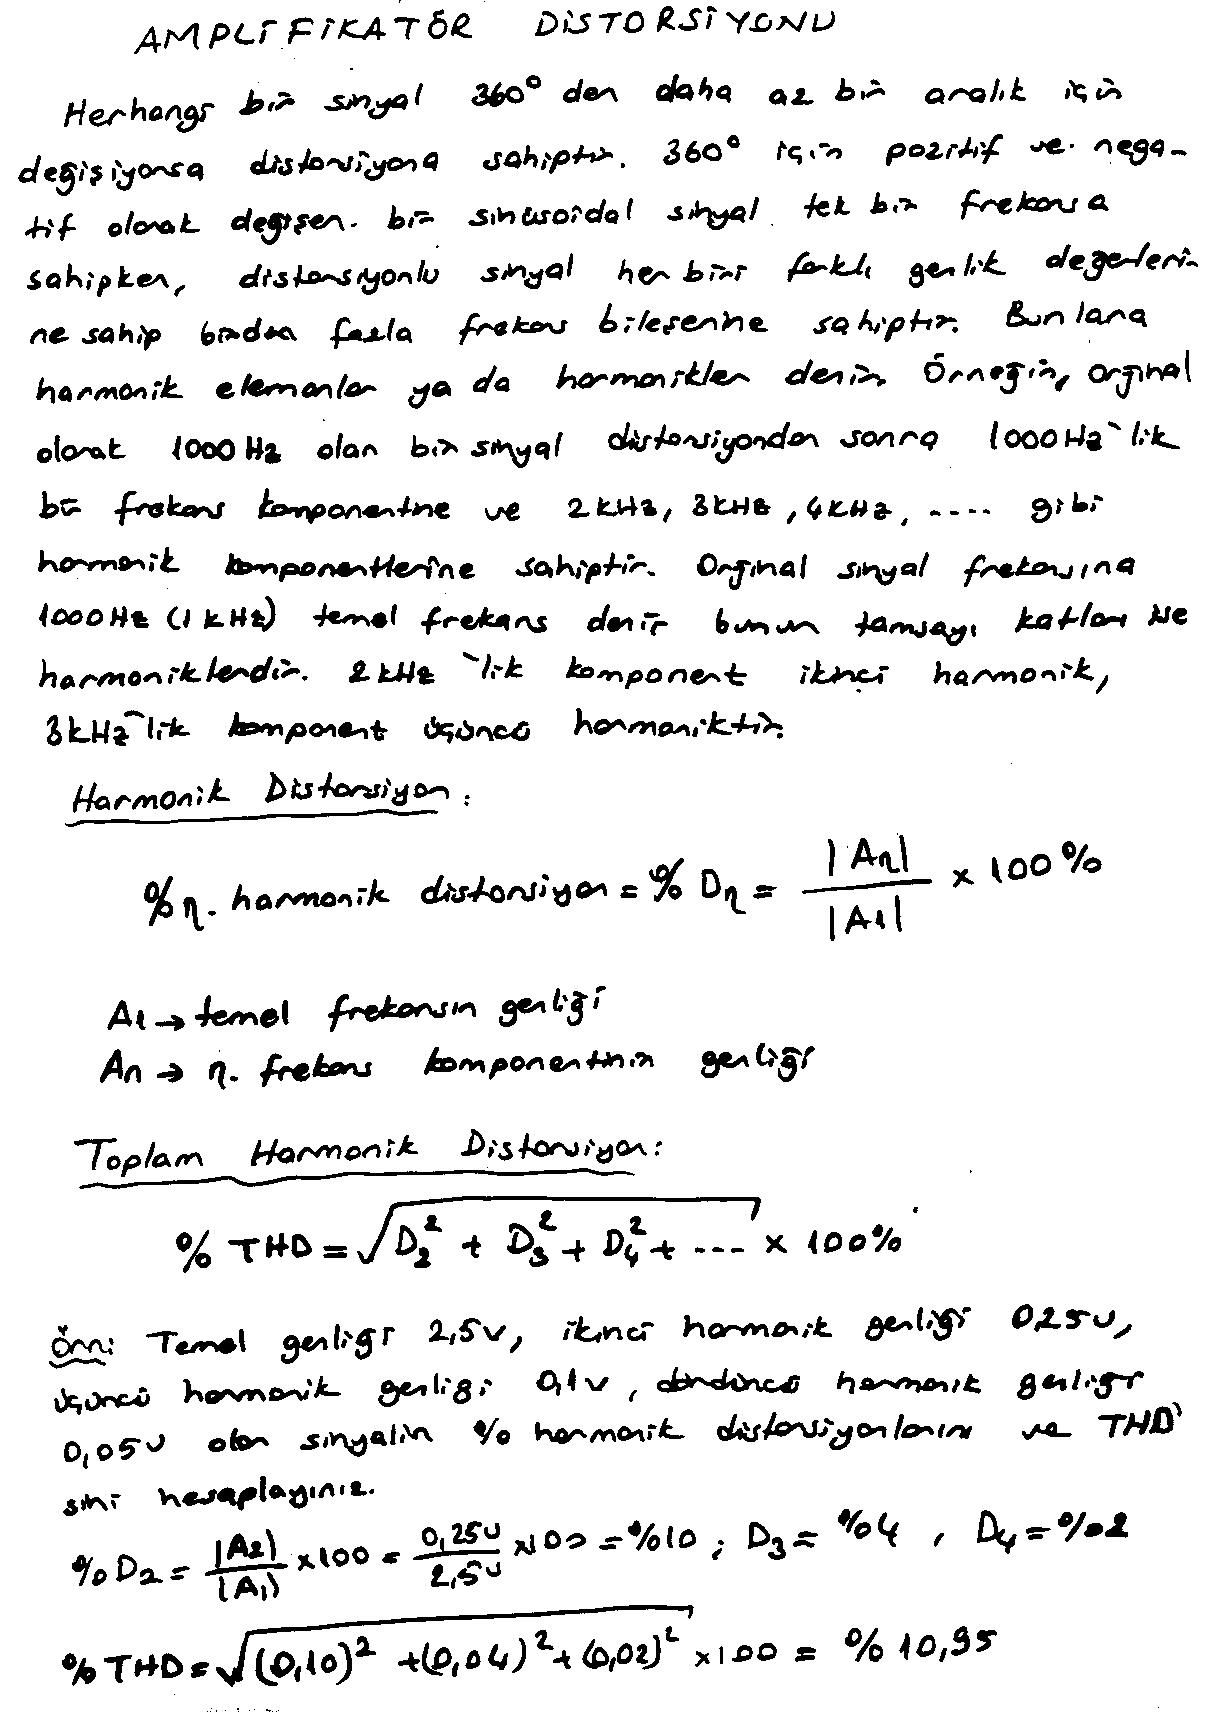 AMPLİFİKATÖR DİSTORSİYONU
Herhangi bir sinyal 360° den daha az bir aralık için
değişiyorsa distorsiyona sahiptir. 360° için pozitif ve nega-
tif olarak değişen bir sinüsoidal sinyal tek bir frekansa
sahipken, distorsiyonlu sinyal her biri farklı genlik değerleri-
ne sahip birden fazla frekans bileşenine sahiptir. Bunlara
harmonik elemanlar ya da harmonikler denir. Örneğin, orjinal
olarak 1000 Hz olan bir sinyal distorsiyondan sonra 1000Hz'lik
bir frekans komponentine ve 2kHz, 3kHz, 4kHz, .... gibi
harmonik komponentlerine sahiptir. Orjinal sinyal frekansına
1000Hz (1 kHz) temel frekans denir bunun tamsayı katları ise
harmoniklerdir. 2kHz'lik komponent ikinci harmonik,
3kHz'lik komponent üçüncü harmoniktir.
Harmonik Distorsiyon:
% η. harmonik distorsiyon = % Dη = |Aη| / |A1| x 100%
A1 → temel frekansın genliği
An → η. frekans komponentinin genliği
Toplam Harmonik Distorsiyon:
% THD = √(D₂² + D₃² + D₄² + ---) x 100%
Örn: Temel genliği 2,5v, ikinci harmonik genliği 0,25v,
üçüncü harmonik genliği 0,1v, dördüncü harmonik genliği
0,05v olan sinyalin % harmonik distorsiyonlarını ve THD'
sini hesaplayınız.
%D₂ = |A2| / |A1| x100 = 0,25v / 2,5v x100 = %10 ; D₃ = %4 , D₄ = %2
% THD = √((0,10)² + (0,04)² + (0,02)²) x100 = % 10,95